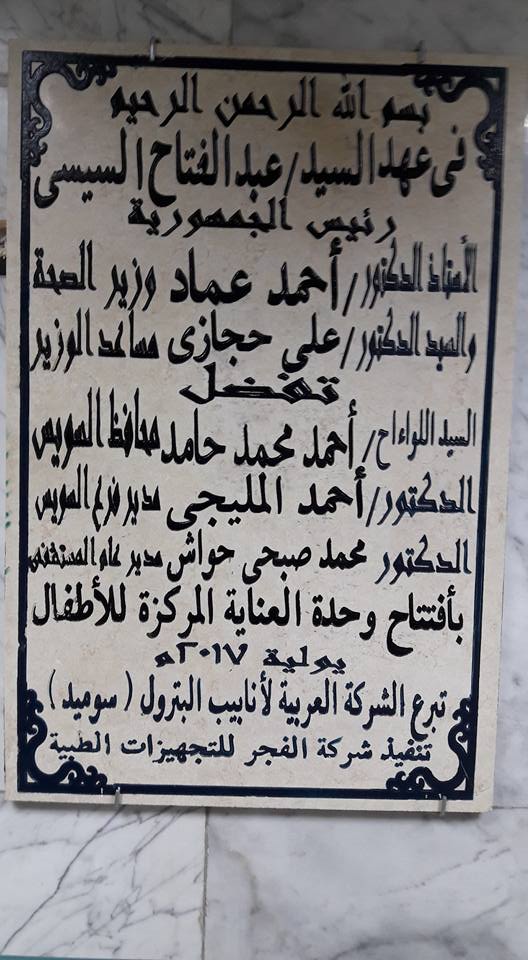 بسم الله الرحمن الرحيم
فى عهد السيد/عبدالفتاح السيسى
رئيس الجمهورية
الأستاذ الدكتور/أحمد عماد وزير الصحة
والسيد الدكتور/على حجازى مساعد الوزير
تفضل
السيد اللواء اح/أحمد محمد حامد محافظ السويس
الدكتور/أحمد المليجى مدير فرع السويس
الدكتور محمد صبحى حواش مدير عام المستشفى
بأفتتاح وحدة العناية المركزة للأطفال
يولية ٢٠١٧م
تبرع الشركة العربية لأنابيب البترول (سوميد)
تنفيذ شركة الفجر للتجهيزات الطبية